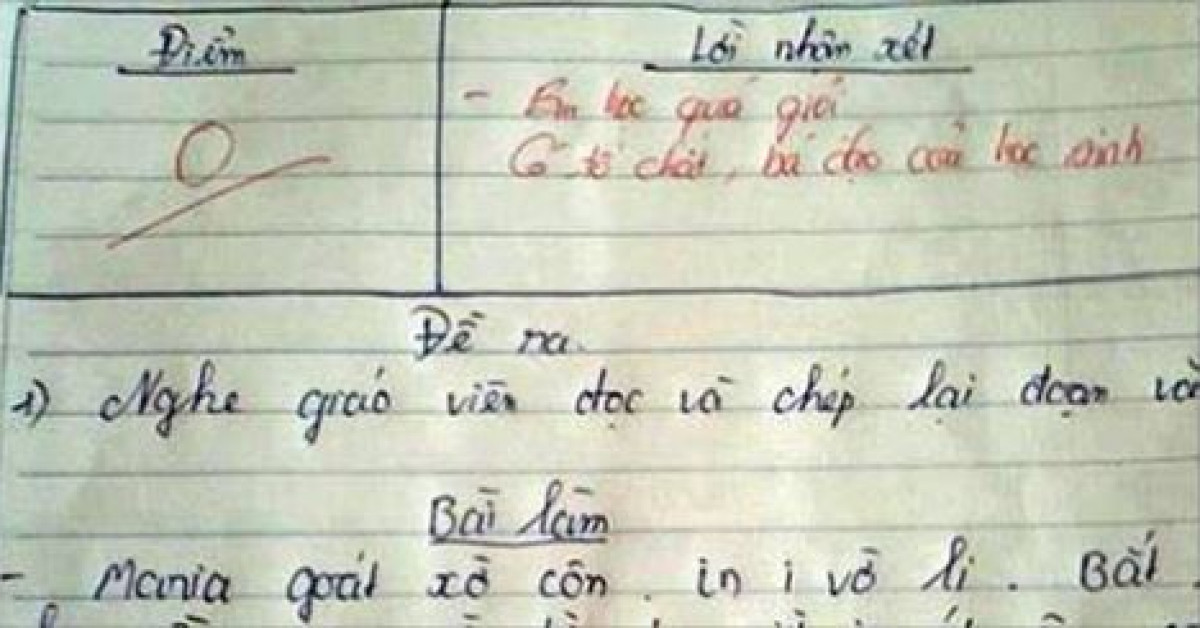 Điểm
Lời nhận xét
0
- Em học quá giỏi
Có tố chất, bá đạo của học sinh
Đề ra
1) Nghe giáo viên đọc và chép lại đoạn vă
Bài làm
- Mania goát xờ côn. in i vờ li. Bất